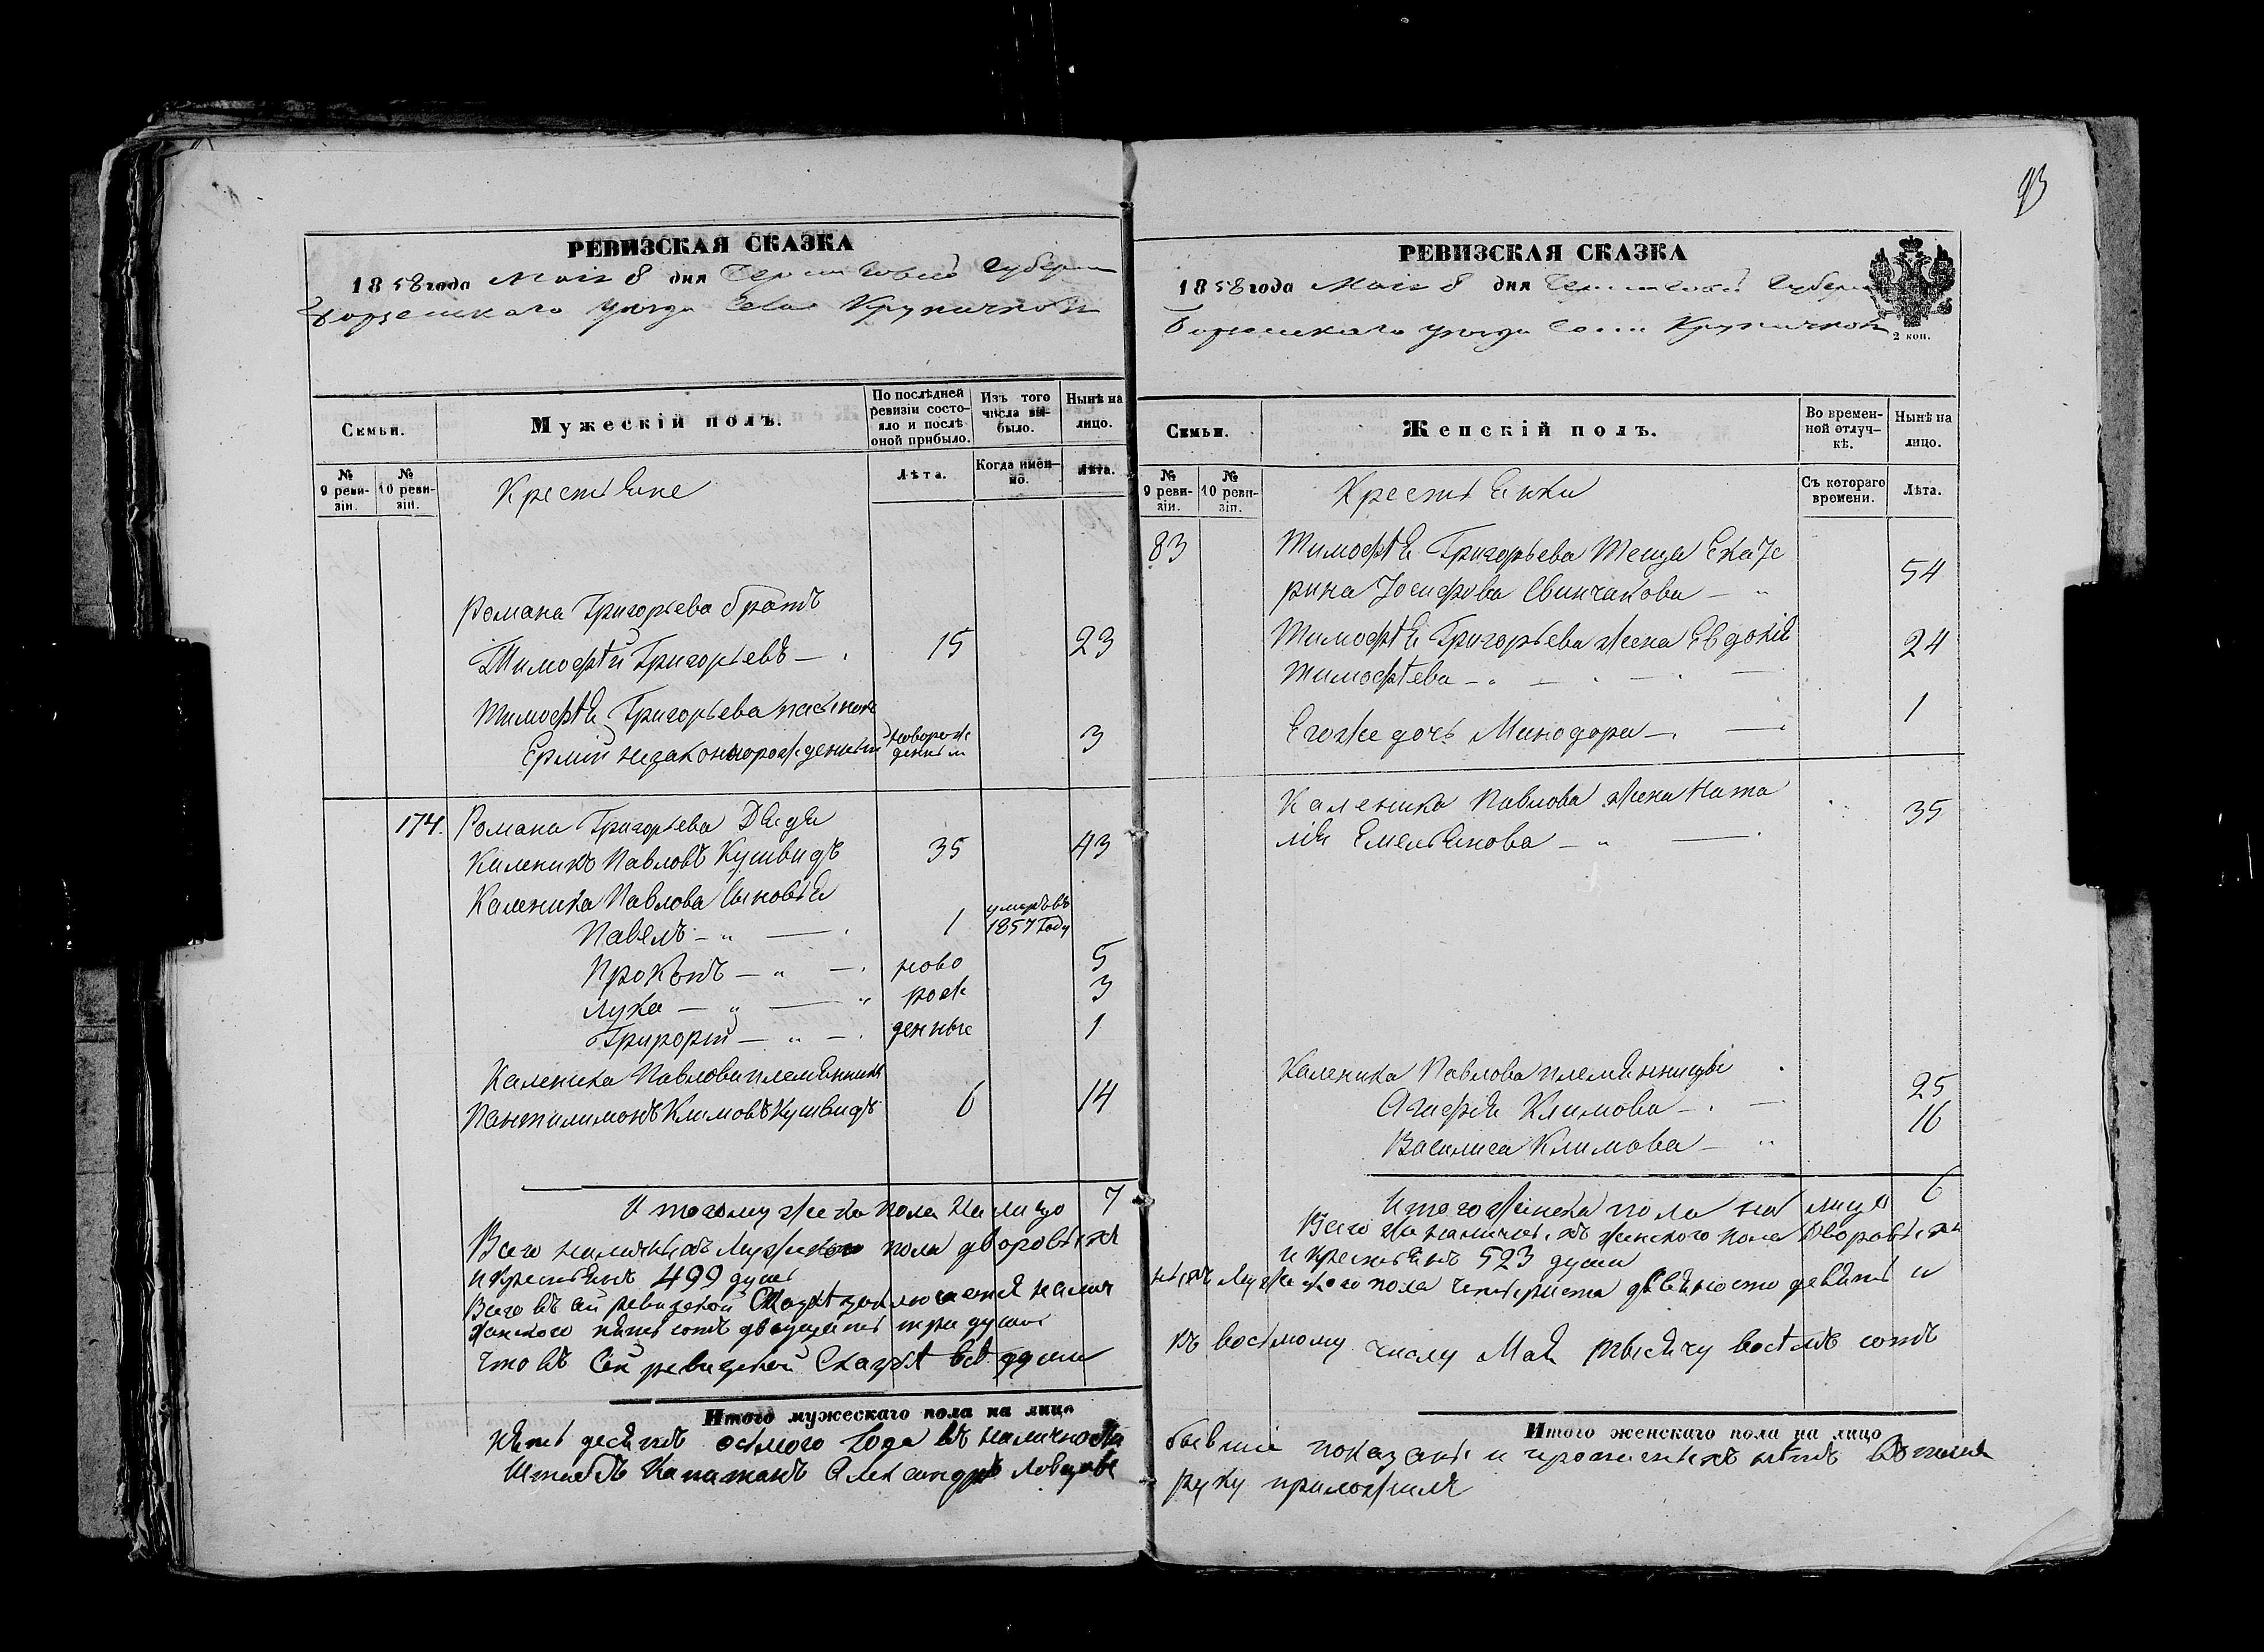 РЕВИЗСКАЯ СКАЗКА
1858 года Маія 8 дня Черниговской Губерніи
Борзенскаго уезда Села Крупичполя
Семьи.
Мужескій полъ.
По послѣдней ревизіи состояло и послѣ оной прибыло.
Изъ того числа выбыло.
Нынѣ на лицо.
№ 9 ревизіи.
№ 10 ревизіи.
Крестьяне
Лѣта.
Когда именно.
Лѣта.
Романа Григорьева братъ
Тимофѣй Григорьевъ — 15 23
Тимофѣя Григорьева пасынокъ
Ермій незаконнорожденный новорож
денный 3
174. Романа Григорьева Дядя
Каленикъ Павловъ Кушвидъ 35 43
Каленика Павлова Сыновья
Павелъ — " — 1 умеръ въ
1857 Году
Прокопъ — " — ново 5
Лука — " — " рож 3
Григорій — " — денные 1
Каленика Павлова племянникъ
Пантилимонъ Климовъ Кушвидъ 6 14
Итого мужеска пола На лицо 7
Всего наличныхъ Мужеска пола дворовыхъ
и Крестьянъ 499 душъ
Всего въ сей ревизской Сказкѣ заключается налич
женского пять сотъ двадцать три души
Что въ Сей ревизской Сказкѣ всѣ души
Итого мужескаго пола на лицо
пять десятъ осмого Года въ наличности
Штабсъ Капитанъ Александръ
93
РЕВИЗСКАЯ СКАЗКА
1858 года Маія 8 дня Черниговской Губерніи
Борзенскаго уезда Села Крупичполя
2 коп.
Семьи.
Женскій полъ.
Во временной отлучкѣ.
Нынѣ на лицо.
№ 9 ревизіи.
№ 10 ревизіи.
Крестьянки
Съ котораго времени.
Лѣта.
83 Тимофѣя Григорьева Теща Екате
рина Іосифова Свинчакова — " 54
Тимофѣя Григорьева жена Евдокія
Тимофѣева — " — " — " — 24
Его же дочь Минодора — . — 1
Каленика Павлова жена Ната
лія Емельянова — " — 35
Каленика Павлова племянницы
Агафія Климова — . — 25
Василиса Климова — " 16
Итого женска пола на лицо 6
Всего же наличныхъ женского пола Дворовыхъ
и Крестьянъ 523 души
ныхъ Мужеского пола четыриста дѣвяносто девять и
къ восьмому числу Мая тысячу восѣмъ сотъ
Итого женскаго пола на лицо
бывшіе показаны и прописныхъ нѣтъ въ томъ
руку приложилъ